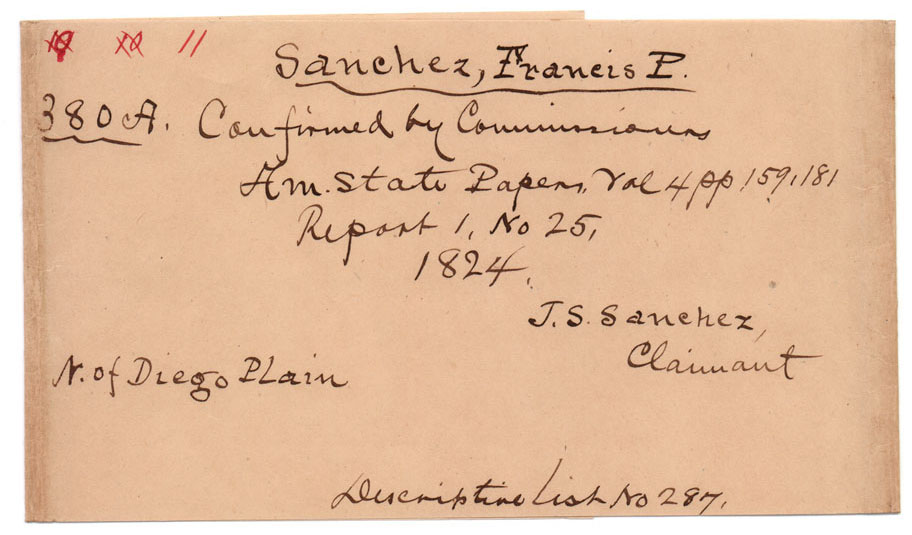 11
Sanchez, Francis P.
380 A. Confirmed by Commissioners
Am. State Papers, Vol 4 pp 159, 181
Report 1, No 25,
1824.
J. S. Sanchez,
Claimant
N. of Diego Plain
Descriptive List No 287.